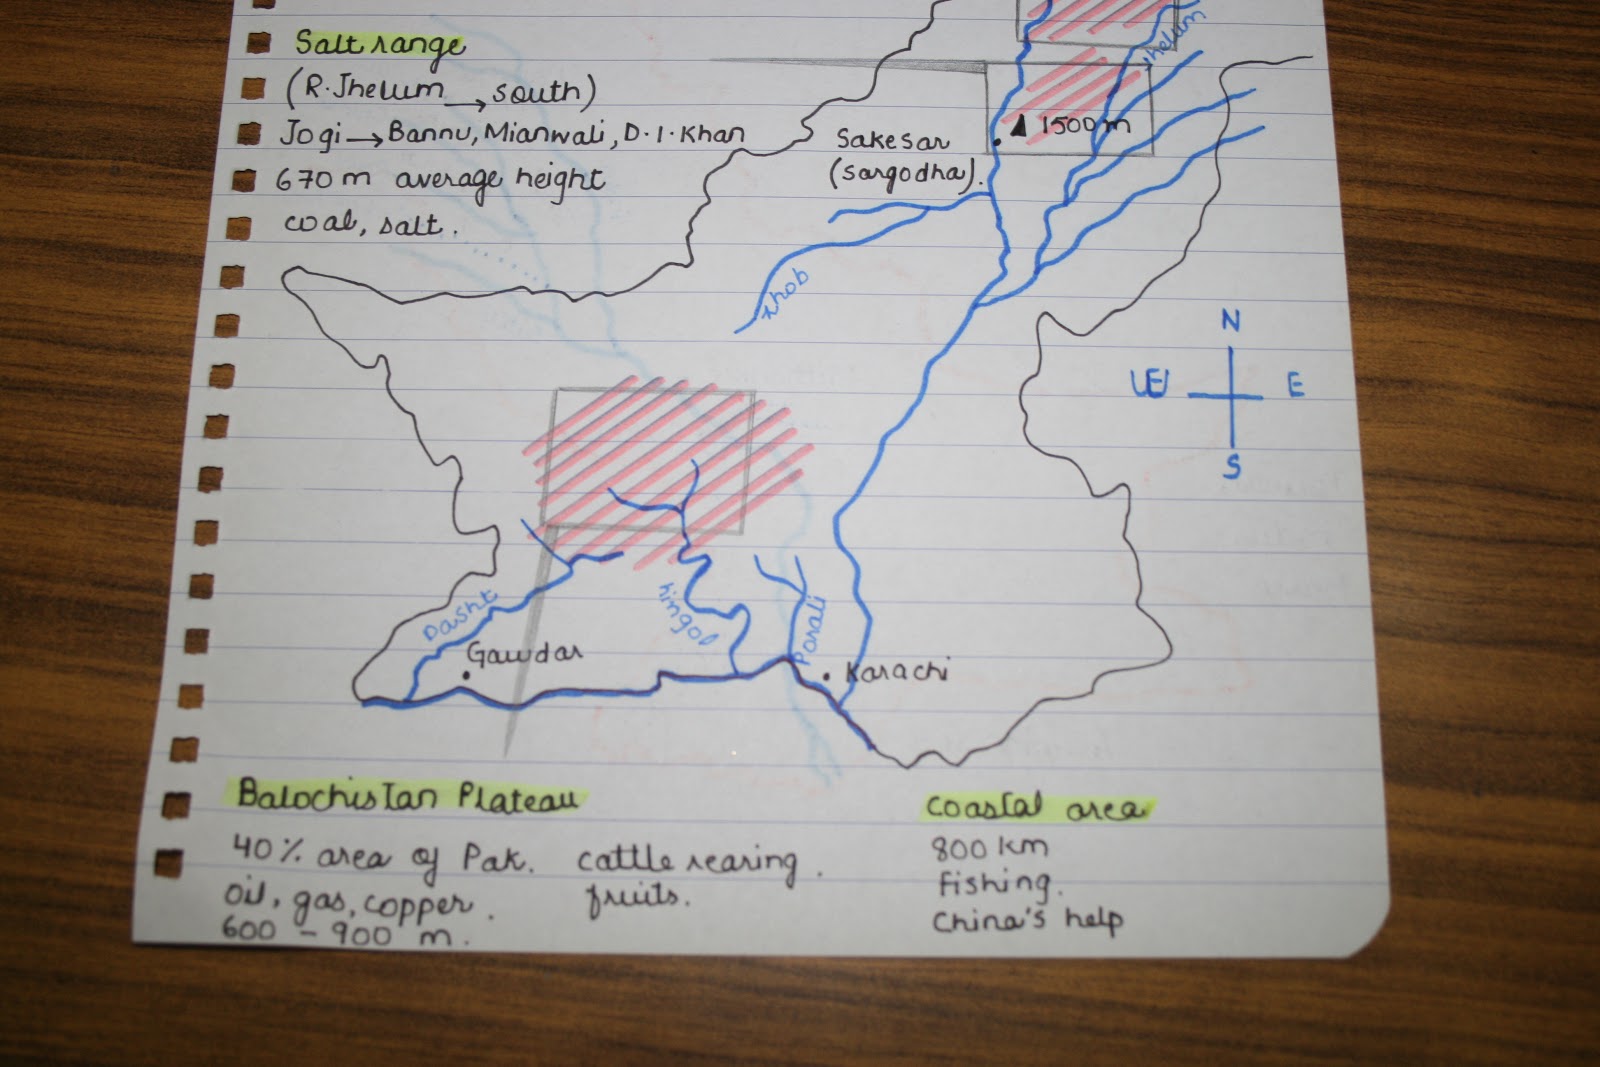 Salt range
(R.Jhelum → south)
Jogi → Bannu, Mianwali, D.I.Khan
670 m average height
coal, salt.
Jhelum
1500 m
Sakesar
(sargodha).
zhob
N
W E
S
Dasht
hingol
Porali
Gawdar
Karachi
Balochistan Plateau
40% area of Pak. cattle rearing.
oil, gas, copper. fruits.
600 - 900 m.
coastal area
800 km
fishing.
China's help